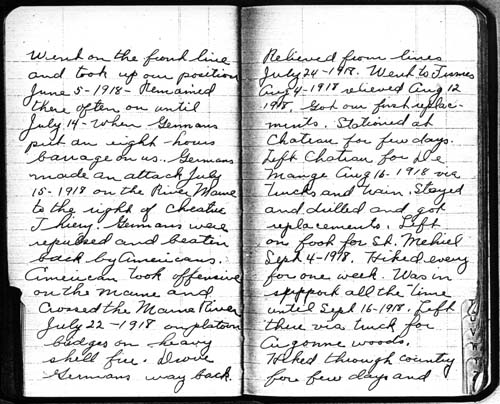 Went on the front line
and took up our position
June 5-1918- Remained
there often on until
July 14- When Germans
put an eight-hours
barrage on us. Germans
made an attack July
15-1918 on the River Marne
to the right of Cheatue
Thiery. Germans were
repulsed and beatin
back by Americans.
American took offensive
on the Marne and
Crossed the Marne River
July 22-1918 on platoon
bridges on heavy
shell fire. Drove
Germans way back.
Relieved from lines
July 24-1918. Went to
Aug 4-1918 relieved Aug 12
1918. Got our first replac-
ments. Stationed at
Chateau for few days.
Left Chateau for Le
Mange Aug 16-1918 via
trucks and train. Stayed
and drilled and got
replacements. Left
on foot for St. Mehiel
Sept 4-1918. Hiked every
for one week. Was in
support all the time
until Sept 16-1918. Left
there via truck for
Argonne woods.
Hiked through country
for few days and